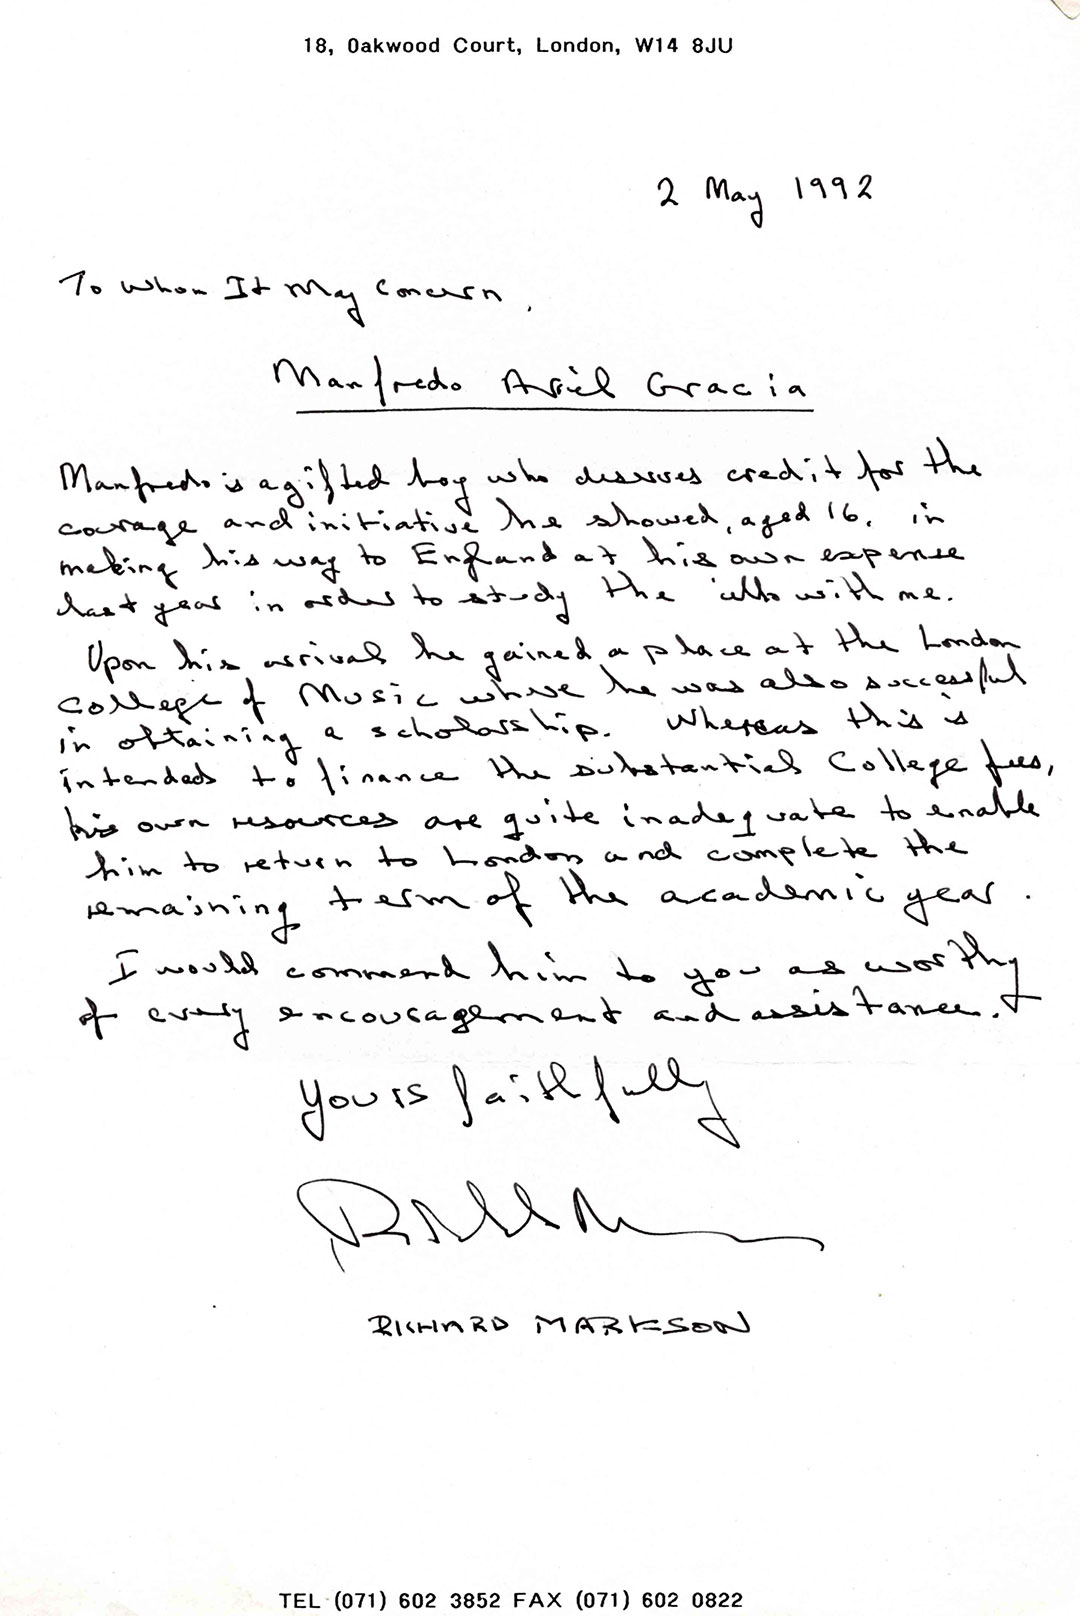 18, Oakwood Court, London, W14 8JU
2 May 1992
To Whom It May Concern,
Manfredo Ariel Gracia
Manfredo is a gifted boy who deserves credit for the
courage and initiative he showed, aged 16, in
making his way to England at his own expense
last year in order to study the 'cello with me.
Upon his arrival he gained a place at the London
College of Music where he was also successful
in obtaining a scholarship. Whereas this is
intended to finance the substantial College fees,
his own resources are quite inadequate to enable
him to return to London and complete the
remaining term of the academic year.
I would commend him to you as worthy
of every encouragement and assistance.
Yours faithfully
RICHARD MARKSON
TEL (071) 602 3852 FAX (071) 602 0822